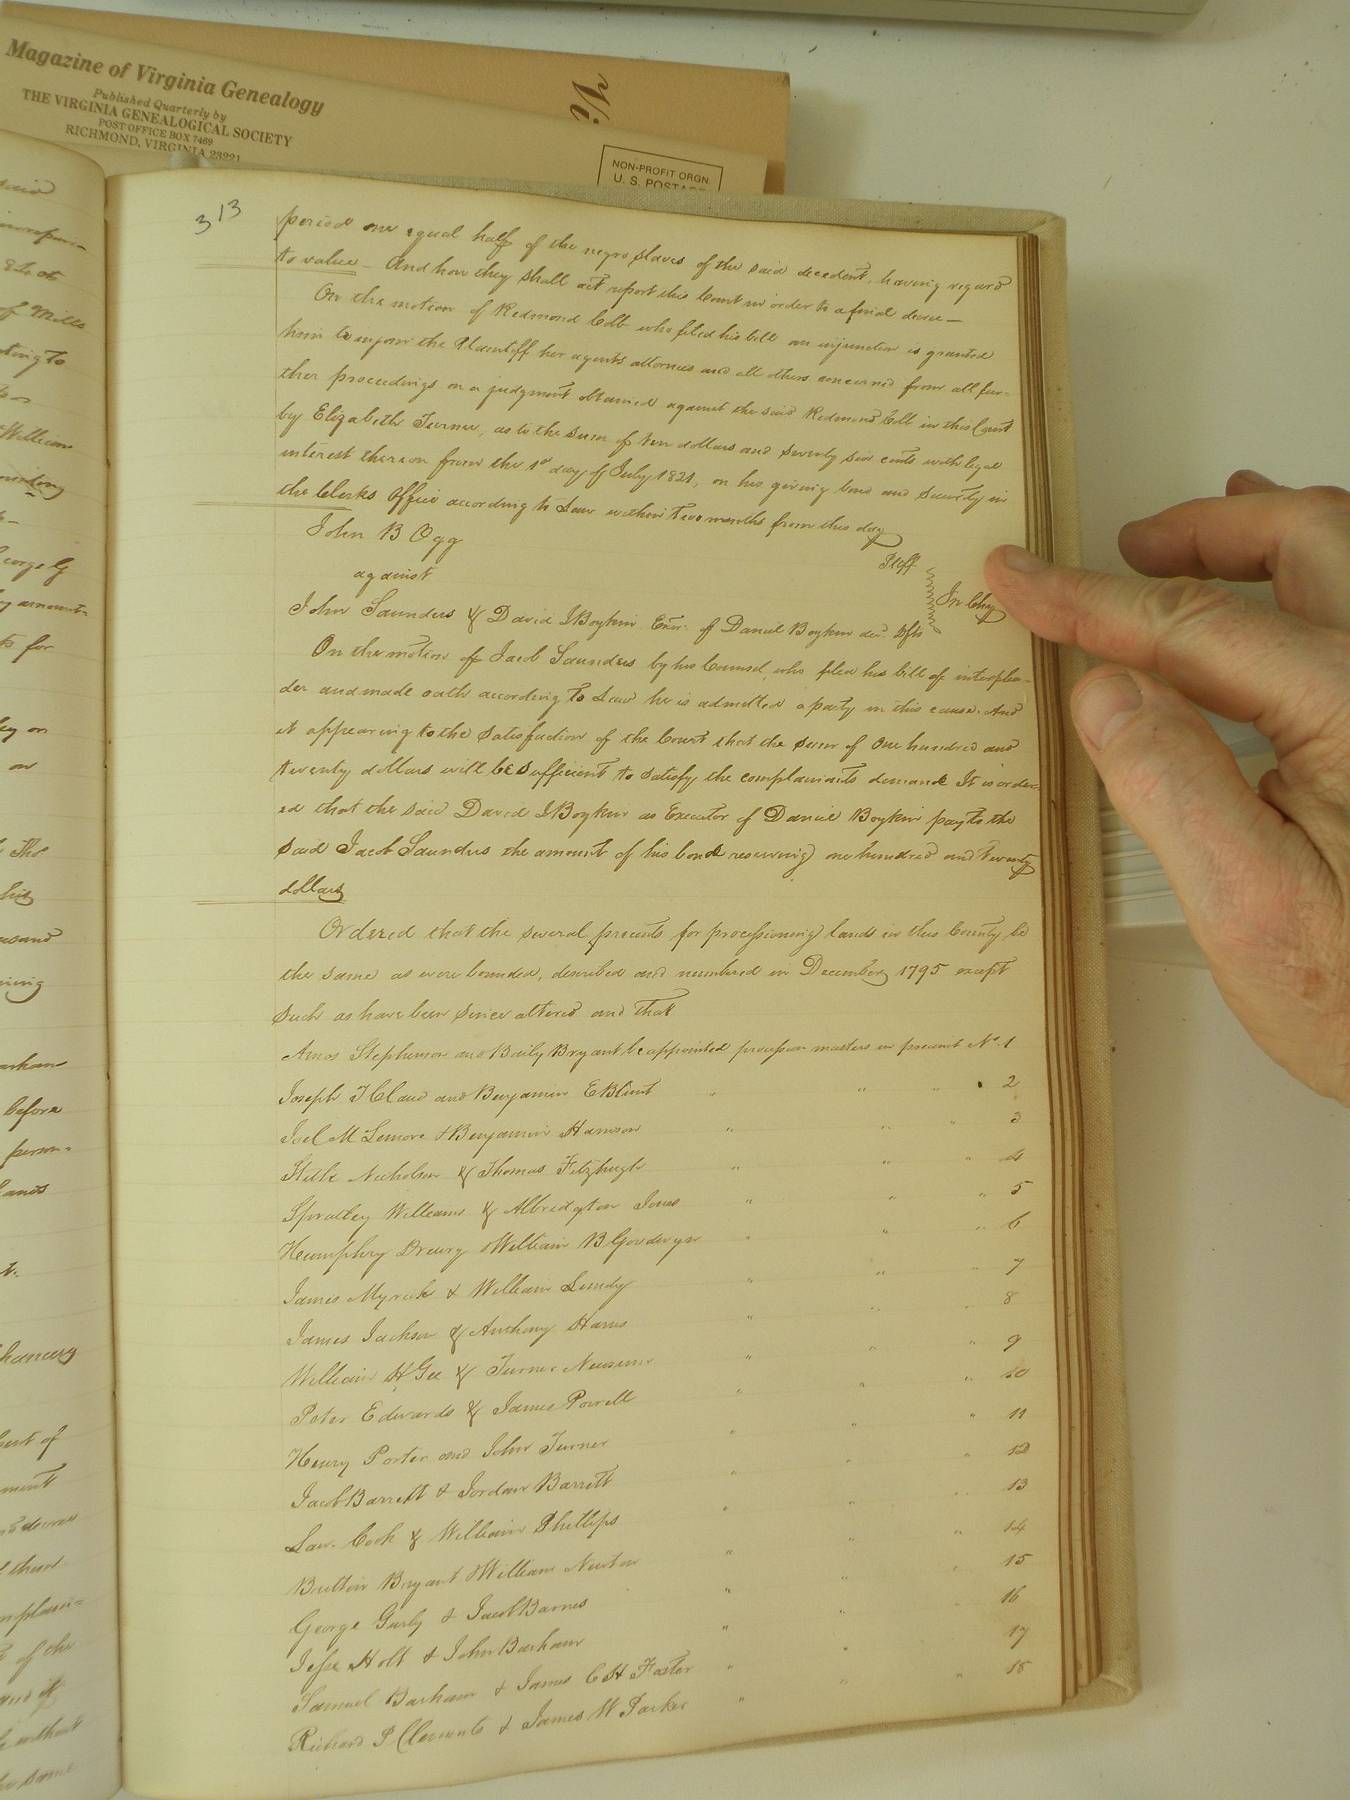 Magazine of Virginia Genealogy
Published Quarterly by
THE VIRGINIA GENEALOGICAL SOCIETY
POST OFFICE BOX 7469
RICHMOND, VIRGINIA 23221
Vi
NON-PROFIT ORGN.
U. S. POSTAGE
313
period one equal half of the negro slaves of the said decedent, having regard
to value - And how they shall act report this Court in order to a final decree -
On the motion of Redmond Cobb who filed his bill an injunction is granted
him to injoin the Plaintiff her agents attornies and all others concerned from all fur-
ther proceedings on a judgment obtained against the said Redmond Cobb in this Court
by Elizabeth Turner, as to the sum of ten dollars and seventy six cents with legal
interest thereon from the 1st day of July 1821, on his giving bond and security in
the Clerks Office according to Law within two months from this day
John B Ogg
Pltff
against
In Chy
John Saunders & David Boykin Exor. of Daniel Boykin dec. Dfts
On the motion of Jacob Saunders by his Counsel, who filed his bill of interplea-
der and made oath according to Law he is admitted a party in this cause. And
it appearing to the satisfaction of the Court that the sum of One hundred and
twenty dollars will be sufficient to satisfy the complainants demand It is order-
ed that the said David Boykin as Executor of Daniel Boykin pay to the
said Jacob Saunders the amount of his bond reserving one hundred and twenty
dollars
Ordered that the several precincts for processioning lands in this County be
the same as were bounded, described and numbered in December 1795 except
such as have been since altered and that
Amos Stephenson and Baily Bryant be appointed procession masters in precinct No. 1
Joseph T Claud and Benjamin E Blunt " " " 2
Joel McLemore & Benjamin Harrison " " " 3
Stith Nicholson & Thomas Fitzhugh " " " 4
Spratley Williams & Albridgton Jones " " " 5
Humphry Drewry & William B Goodwyn " " " 6
James Myrick & William Lundy " " " 7
James Jackson & Anthony Harris " " " 8
William H Gee & Turner Newsum " " " 9
Peter Edwards & James Powell " " " 10
Henry Porter and John Turner " " " 11
Jacob Barrett & Jordan Barrett " " " 12
Law. Cook & William Phillips " " " 13
Britton Bryant & William Newton " " " 14
George Gurly & Jacob Barnes " " " 15
Jesse Holt & John Barham " " " 16
Samuel Barham & James C H Foster " " " 17
Richard P Clements & James W Parker " " " 18